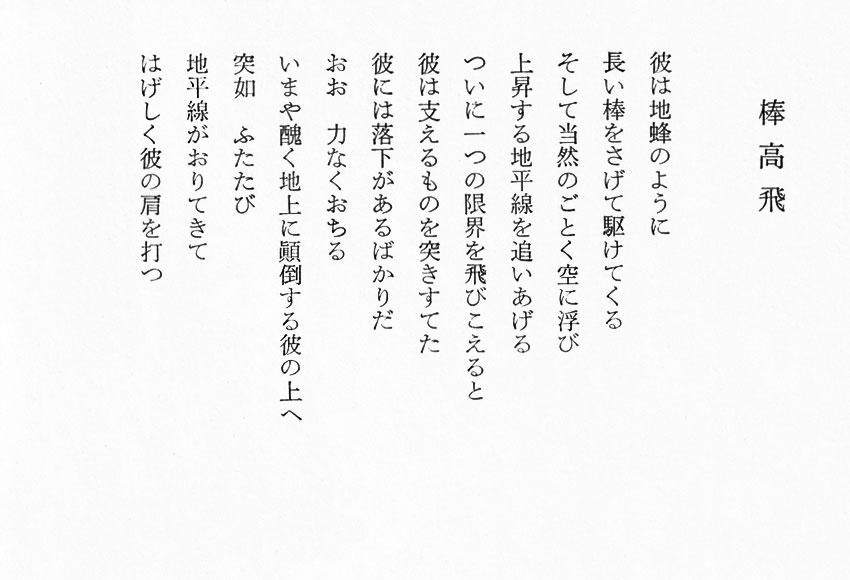 棒高飛
彼は地蜂のように
長い棒をさげて駆けてくる
そして当然のごとく空に浮び
上昇する地平線を追いあげる
ついに一つの限界を飛びこえると
彼は支えるものを突きすてた
彼には落下があるばかりだ
おお　力なくおちる
いまや醜く地上に顚倒する彼の上へ
突如　ふたたび
地平線がおりてきて
はげしく彼の肩を打つ